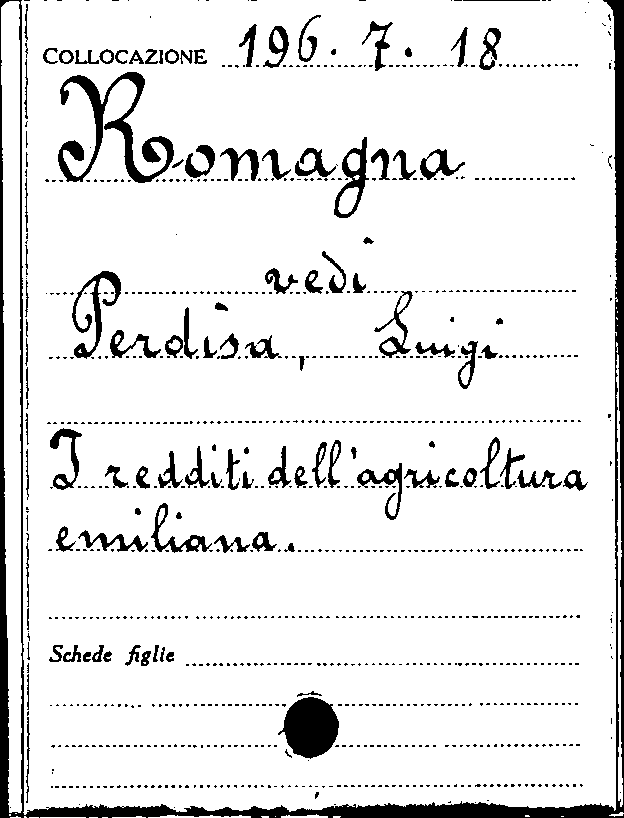 COLLOCAZIONE 196. 7. 18
Romagna
vedi
Perdisa, Luigi
I redditi dell'agricoltura
emiliana.
Schede figlie